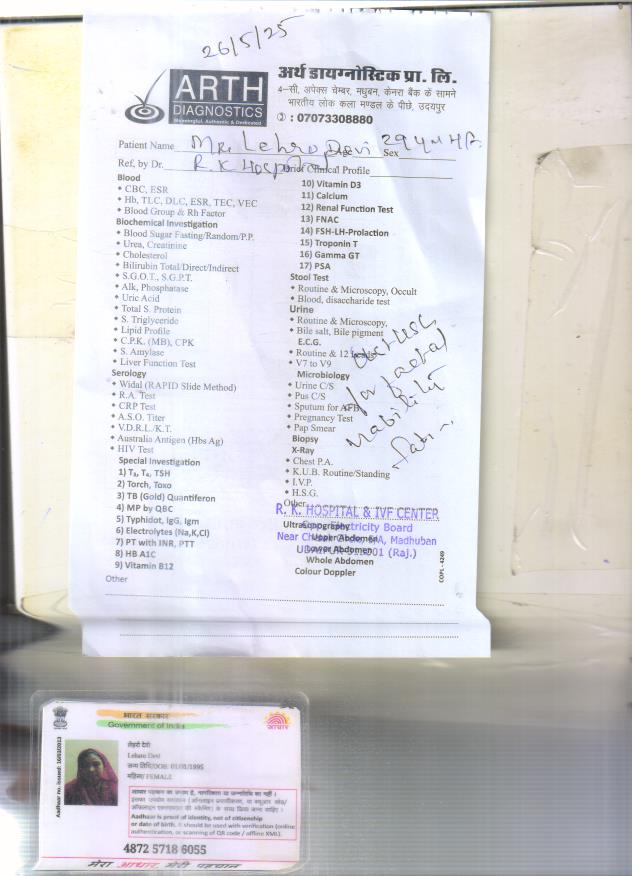 26/5/25
ARTH
DIAGNOSTICS
Meaningful, Authentic & Dedicated
अर्थ डायग्नोस्टिक प्रा. लि.
4-सी, अपेक्स चेम्बर, मधुबन, केनरा बैंक के सामने
भारतीय लोक कला मण्डल के पीछे, उदयपुर
07073308880
Patient Name Mrs. Lehro Devi 29 Sex
Ref, by Dr. R.K Hospital Brief Clinical Profile
Blood
CBC, ESR
Hb, TLC, DLC, ESR, TEC, VEC
Blood Group & Rh Factor
Biochemical Investigation
Blood Sugar Fasting/Random/P.P.
Urea, Creatinine
Cholesterol
Bilirubin Total/Direct/Indirect
S.G.O.T., S.G.P.T.
Alk, Phosphatase
Uric Acid
Total S. Protein
S. Triglyceride
Lipid Profile
C.P.K. (MB), CPK
S. Amylase
Liver Function Test
Serology
Widal (RAPID Slide Method)
R.A. Test
CRP Test
A.S.O. Titer
V.D.R.L./K.T.
Australia Antigen (Hbs Ag)
HIV Test
Special Investigation
1) T₃, T₄, TSH
2) Torch, Toxo
3) TB (Gold) Quantiferon
4) MP by QBC
5) Typhidot, IgG, Igm
6) Electrolytes (Na,K,Cl)
7) PT with INR, PTT
8) HB A1C
9) Vitamin B12
Other
10) Vitamin D3
11) Calcium
12) Renal Function Test
13) FNAC
14) FSH-LH-Prolaction
15) Troponin T
16) Gamma GT
17) PSA
Stool Test
Routine & Microscopy, Occult
Blood, disaccharide test
Urine
Routine & Microscopy,
Bile salt, Bile pigment
E.C.G.
Routine & 12 Leads
V7 to V9
Microbiology
Urine C/S
Pus C/S
Sputum for AFB
Pregnancy Test
Pap Smear
Biopsy
X-Ray
Chest P.A.
K.U.B. Routine/Standing
I.V.P.
H.S.G.
Other
Ultrasonography
Upper Abdomen
Lower Abdomen
Whole Abdomen
Colour Doppler
for
R. K. HOSPITAL & IVF CENTER
Opp. Electricity Board
Madhuban
(Raj.)
COPL - 4249
भारत सरकार
Government of India
आधार
Aadhaar no. issued: 16/03/2013
लेहरो देवी
Leharo Devi
जन्म तिथि/DOB: 01/01/1995
महिला/ FEMALE
आधार पहचान का प्रमाण है, नागरिकता या जन्मतिथि का नहीं ।
इसका उपयोग सत्यापन (ऑनलाइन प्रमाणीकरण, या क्यूआर कोड/
ऑफ़लाइन एक्सएमएल की स्कैनिंग) के साथ किया जाना चाहिए ।
Aadhaar is proof of identity, not of citizenship
or date of birth. It should be used with verification (online
authentication, or scanning of QR code / offline XML).
4872 5718 6055
मेरा आधार, मेरी पहचान